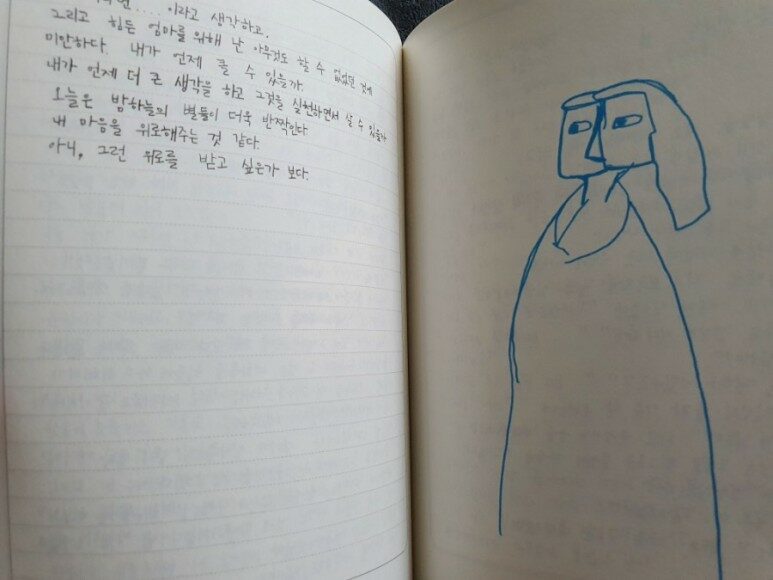 이라고 생각하고.
그리고 힘든 엄마를 위해 난 아무것도 할 수 없었던 것에
미안하다. 내가 언제 클 수 있을까.
내가 언제 더 큰 생각을 하고 그것을 실현하면서 살 수 있을까
오늘은 밤하늘의 별들이 더욱 반짝인다
내 마음을 위로해주는 것 같다.
아니, 그런 위로를 받고 싶은가 보다.